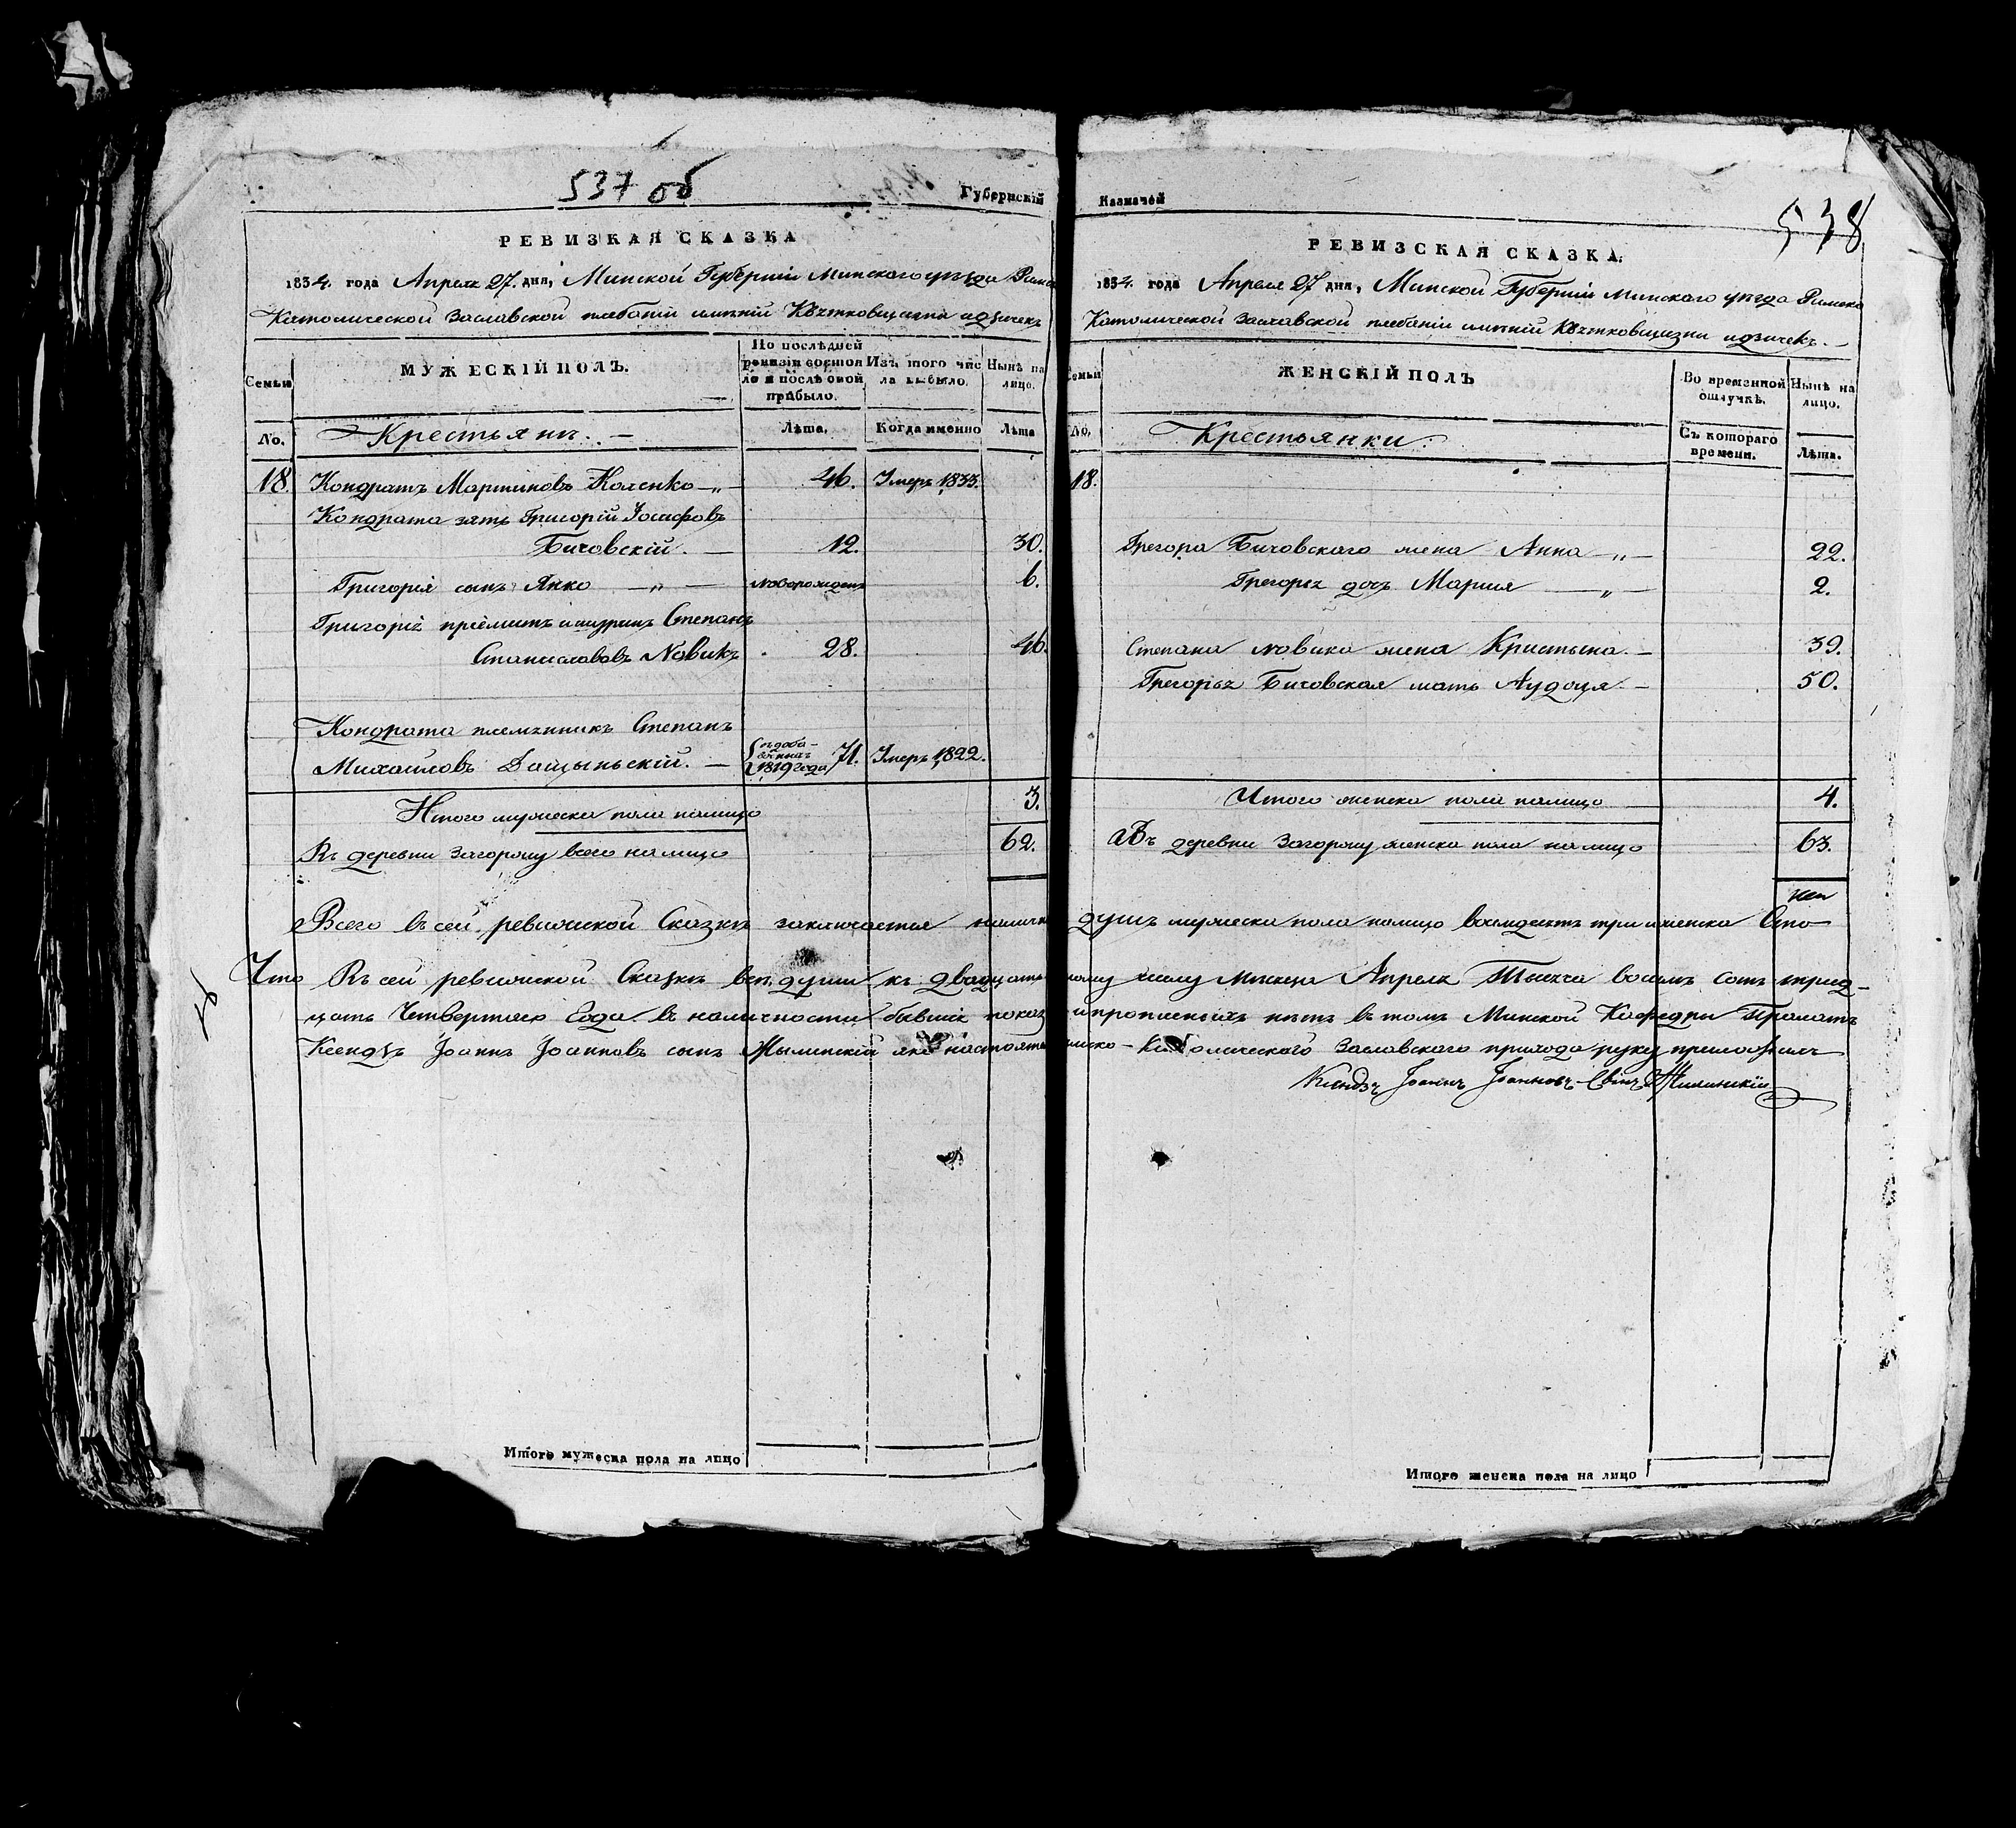 537 об
Губернскій
РЕВИЗКАЯ СКАЗКА
1834. года Апреля 27. дня, Минской Губерніи Минского уѣзда Римско
Католической Заславской плебаніи имѣній Кѣчтковщизны
МУЖЕСКІЙ ПОЛЪ.
Семьи
По послѣдней ревизіи состоя ло и послѣ оной прибыло.
Изъ того чис ла выбыло.
Нынѣ на лицо.
No.
Крестьянъ.
Лѣта.
Когда именно
Лѣта
18. Кондратъ Мартиновъ Коленко —„— 46. Умеръ 1833.
Кондрата зять Григорій Іосифовъ
Бичовскій. — 12. 30.
Григорія сынъ Янко —„— новорожденъ 6.
Григорія пріёмытъ и шуринъ Степанъ
Станиславовъ Новикъ 28. 46.
Кондрата племянникъ Степанъ
Михайловъ — 1819 года 71. Умеръ 1822.
Итого мужеска пола налицо 3.
Въ деревни Загорому всего налицо 62.
Казначей
538
РЕВИЗСКАЯ СКАЗКА.
1834. года Апреля 27 дня, Минской Губерніи Минского уѣзда Римско
Католической Заславской плебаніи имѣній Кѣчтковщизны
Семьи
ЖЕНСКІЙ ПОЛЪ
Во временной отлучкѣ.
Нынѣ на лицо.
No.
Крестьянки.
Съ котораго времени.
Лѣта.
18.
Грегора Бичовскаго жена Анна —„— 22.
Грегорія дочь Мария —„— 2.
Степана Новика жена Кристына. — 39.
Грегорія Бичовская мать Аудоця. — 50.
Итого женска пола налицо 4.
Въ деревни Загорому женска пола налицо 63.
Всего въ сей ревижской Сказкѣ заключается душъ мужеска пола налицо восмдесятъ три и женска Сто
Что Въ сей ревижской Сказкѣ всѣ души къ числу Месяца Апреля Тысяча восемъ сотъ трид-
цать Четвертаго Года въ наличности бывшія и прописныхъ нѣтъ въ томъ Минской Кафедры Пралатъ
Ксендзъ Іоаннъ Іоанновъ сынъ Жылинскій яко Католического Заславского прихода руку приложилъ
Ксендзъ Іоаннъ Іоанновъ Сынъ Жилинскій
Итого мужеска пола на лицо
Итого женска пола на лицо